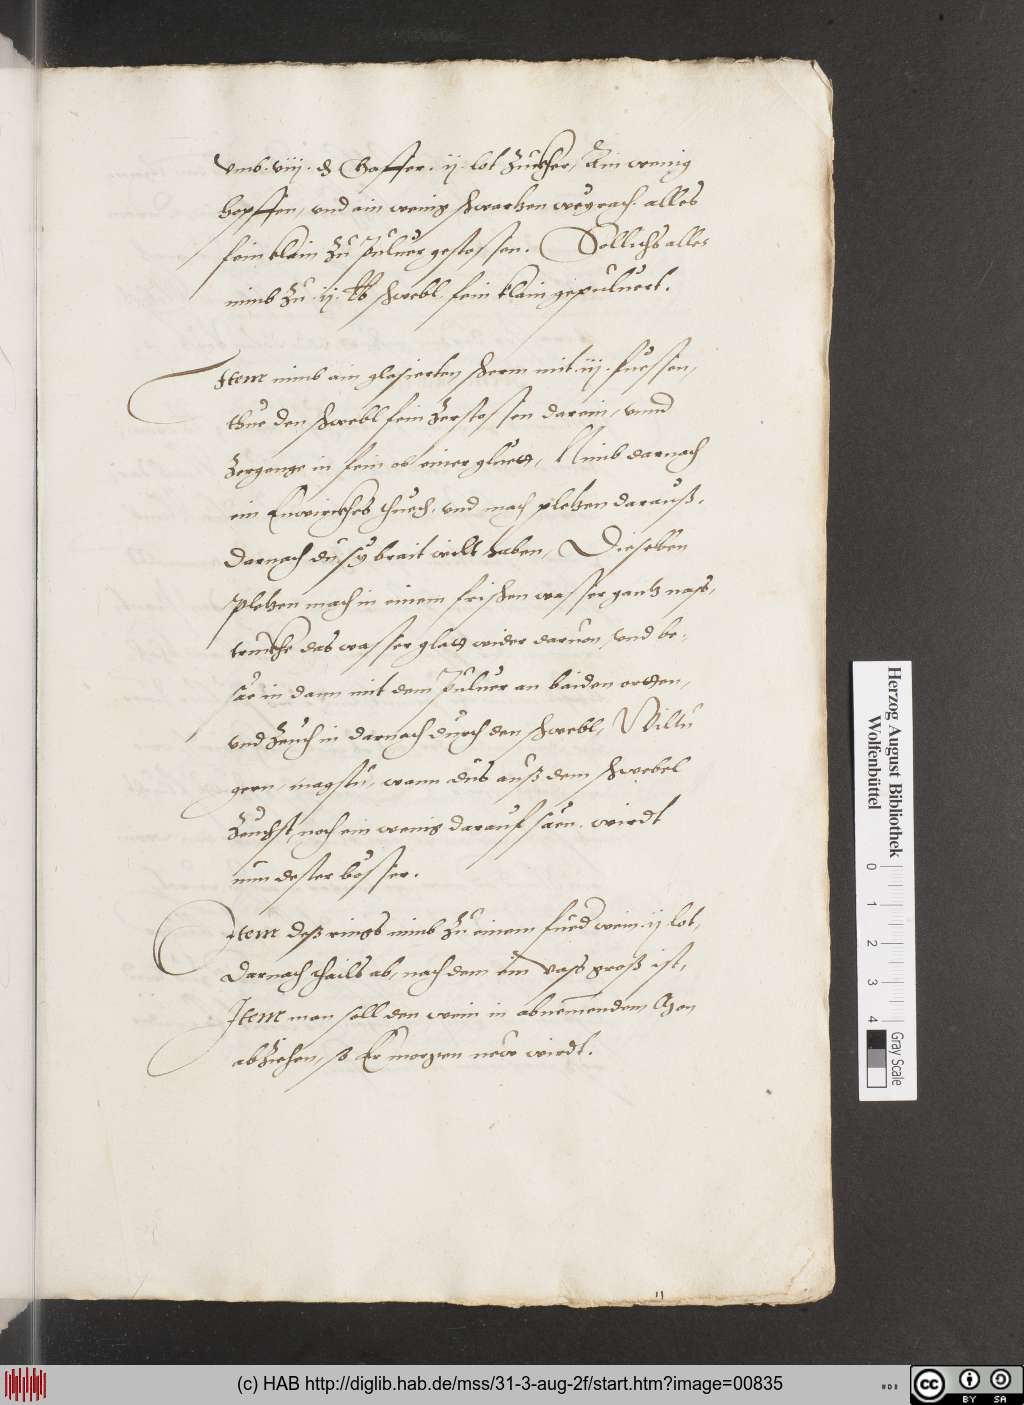 vmb. viij. ₰ Saffer. ij. lot Zuckher, Ain wenig
hopffen, vnd ain wenig schwartzen weyrach. alles
fein klain zu Puluer gestossen. Sollichs alles
nimb zu .ij. lb schwebl fein klain gepuluert.
Item nimb ain glasierten scherm mit .iij. fuessen,
thue den schwebl fein zerstossen darein, vnnd
zergenge in fein ob einer gluett, Nimb darnach
ein tuech, vnd mach pletzen darauß.
Darnach du sy brait wilt haben, Dieselben
Pletzen mach in einem frischen wasser gantz nass,
das wasser glatt wider daruon, vnd be,
säe in dann mit dem Puluer an baiden ortten,
vnd zeuch in darnach durch den schwebl, Wiltu
gern, magstu, wann dus auß dem schwebel
zeuchst, noch ein wenig darauf säen, wirdt
nun dester bösser.
Item deß rings nimb zu einem fueder wein .ij lot,
Darnach thails ab, nach dem ein vass groß ist,
Item man soll den wein in abnemendem Mon
abziehen, so Er morgen new wirdt.
Herzog August Bibliothek
Wolfenbüttel
0 1 2 3 4
Gray Scale
(c) HAB http://diglib.hab.de/mss/31-3-aug-2f/start.htm?image=00835
cc BY SA